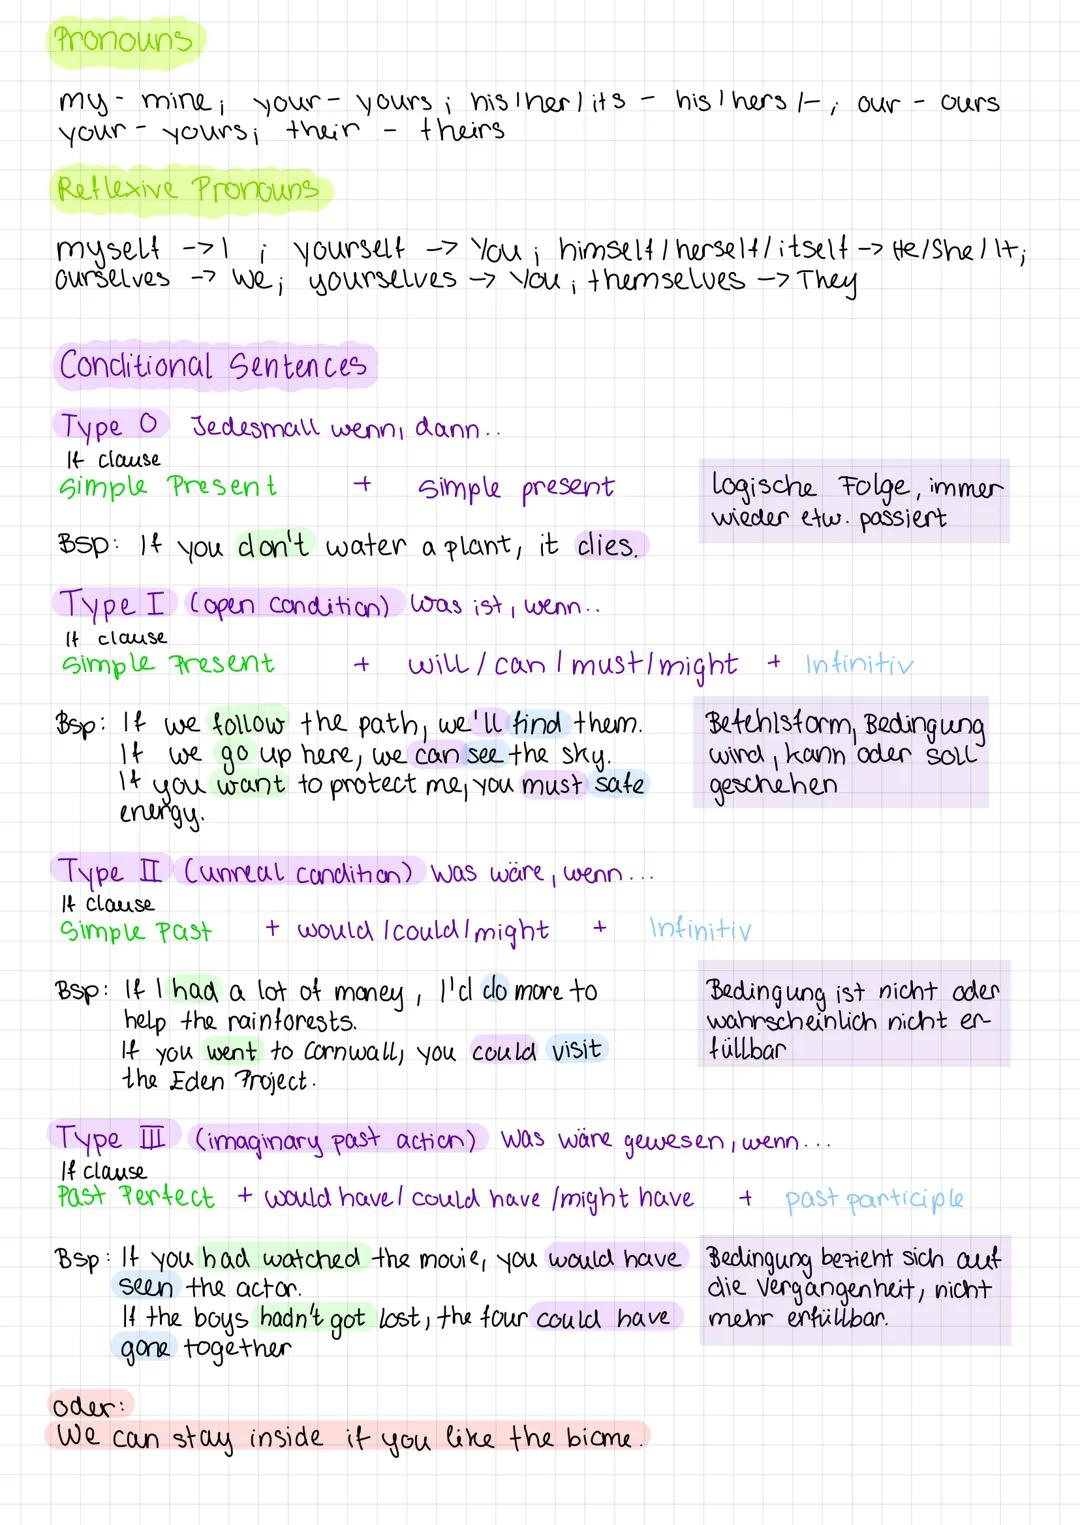 Pronouns
my - mine; your - yours; his/her/its - his/hers/-; our - ours
your - yours; their - theirs
Reflexive Pronouns
myself -> I ; yourself -> You; himself/herself/itself -> He/She/It;
ourselves -> We; yourselves -> You; themselves -> They
Conditional Sentences
Type 0 Jedesmall wenn, dann..
If clause
Simple Present + simple present
logische Folge, immer
wieder etw. passiert
Bsp: If you don't water a plant, it dies.
Type I (open condition) Was ist, wenn..
If clause
Simple Present + will/can/must/might + Infinitiv
Bsp: If we follow the path, we'll find them.
If we go up here, we can see the sky.
If you want to protect me, you must safe
energy.
Befehlsform, Bedingung
wird, kann oder soll
geschehen
Type II (unreal condition) Was wäre, wenn...
If clause
Simple Past + would/could/might + Infinitiv
Bsp: If I had a lot of money, I'd do more to
help the rainforests.
If you went to Cornwall, you could visit
the Eden Project.
Bedingung ist nicht oder
wahrscheinlich nicht er-
füllbar
Type III (imaginary past action) Was wäre gewesen, wenn...
If clause
Past Perfect + would have/ could have /might have + past participle
Bsp: If you had watched the movie, you would have
seen the actor.
If the boys hadn't got lost, the four could have
gone together
Bedingung bezieht sich auf
die Vergangenheit, nicht
mehr erfüllbar.
oder:
We can stay inside if you like the biome.